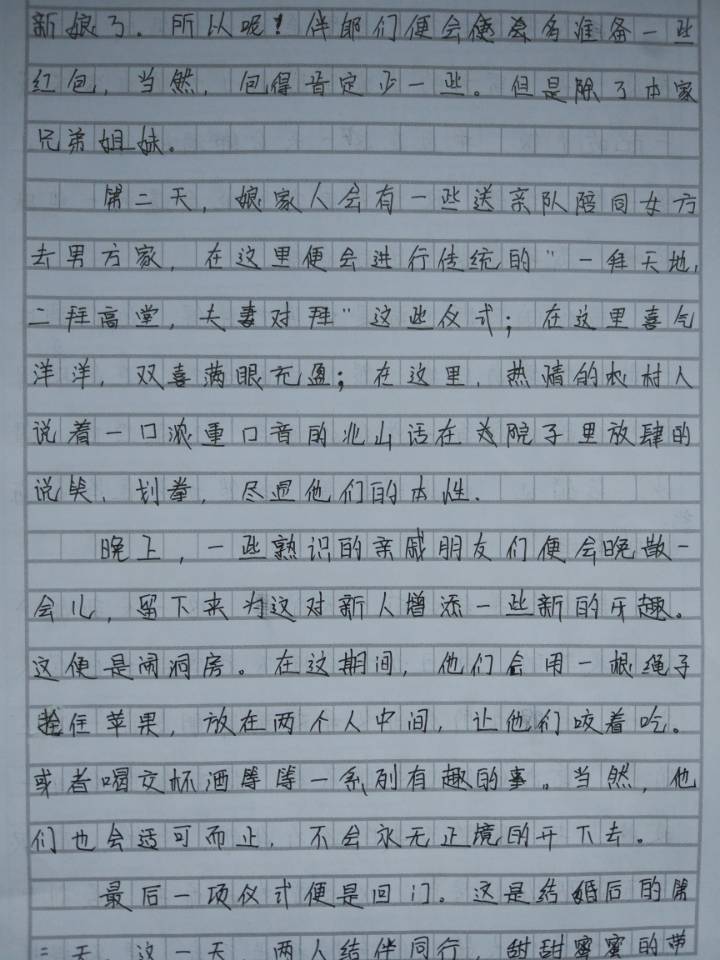 新娘了。所以呢！伴郎们便会多准备一些
红包，当然，包得肯定少一些。但是除了本家
兄弟姐妹。
第二天，娘家人会有一些送亲队陪同女方
去男方家，在这里便会进行传统的"一拜天地，
二拜高堂，夫妻对拜"这些仪式；在这里喜气
洋洋，双喜满眼充盈；在这里，热情的农村人
说着一口浓重口音的北山话在院子里放肆的
说笑、划拳，尽显他们的本性。
晚上，一些熟识的亲戚朋友们便会晚散一
会儿，留下来为这对新人增添一些新的乐趣。
这便是闹洞房。在这期间，他们会用一根绳子
拴住苹果，放在两个人中间，让他们咬着吃。
或者喝交杯酒等等一系列有趣的事。当然，他
们也会适可而止，不会永无止境的开下去。
最后一项仪式便是回门。这是结婚后的第
三天，这一天，两人结伴同行，甜甜蜜蜜的带